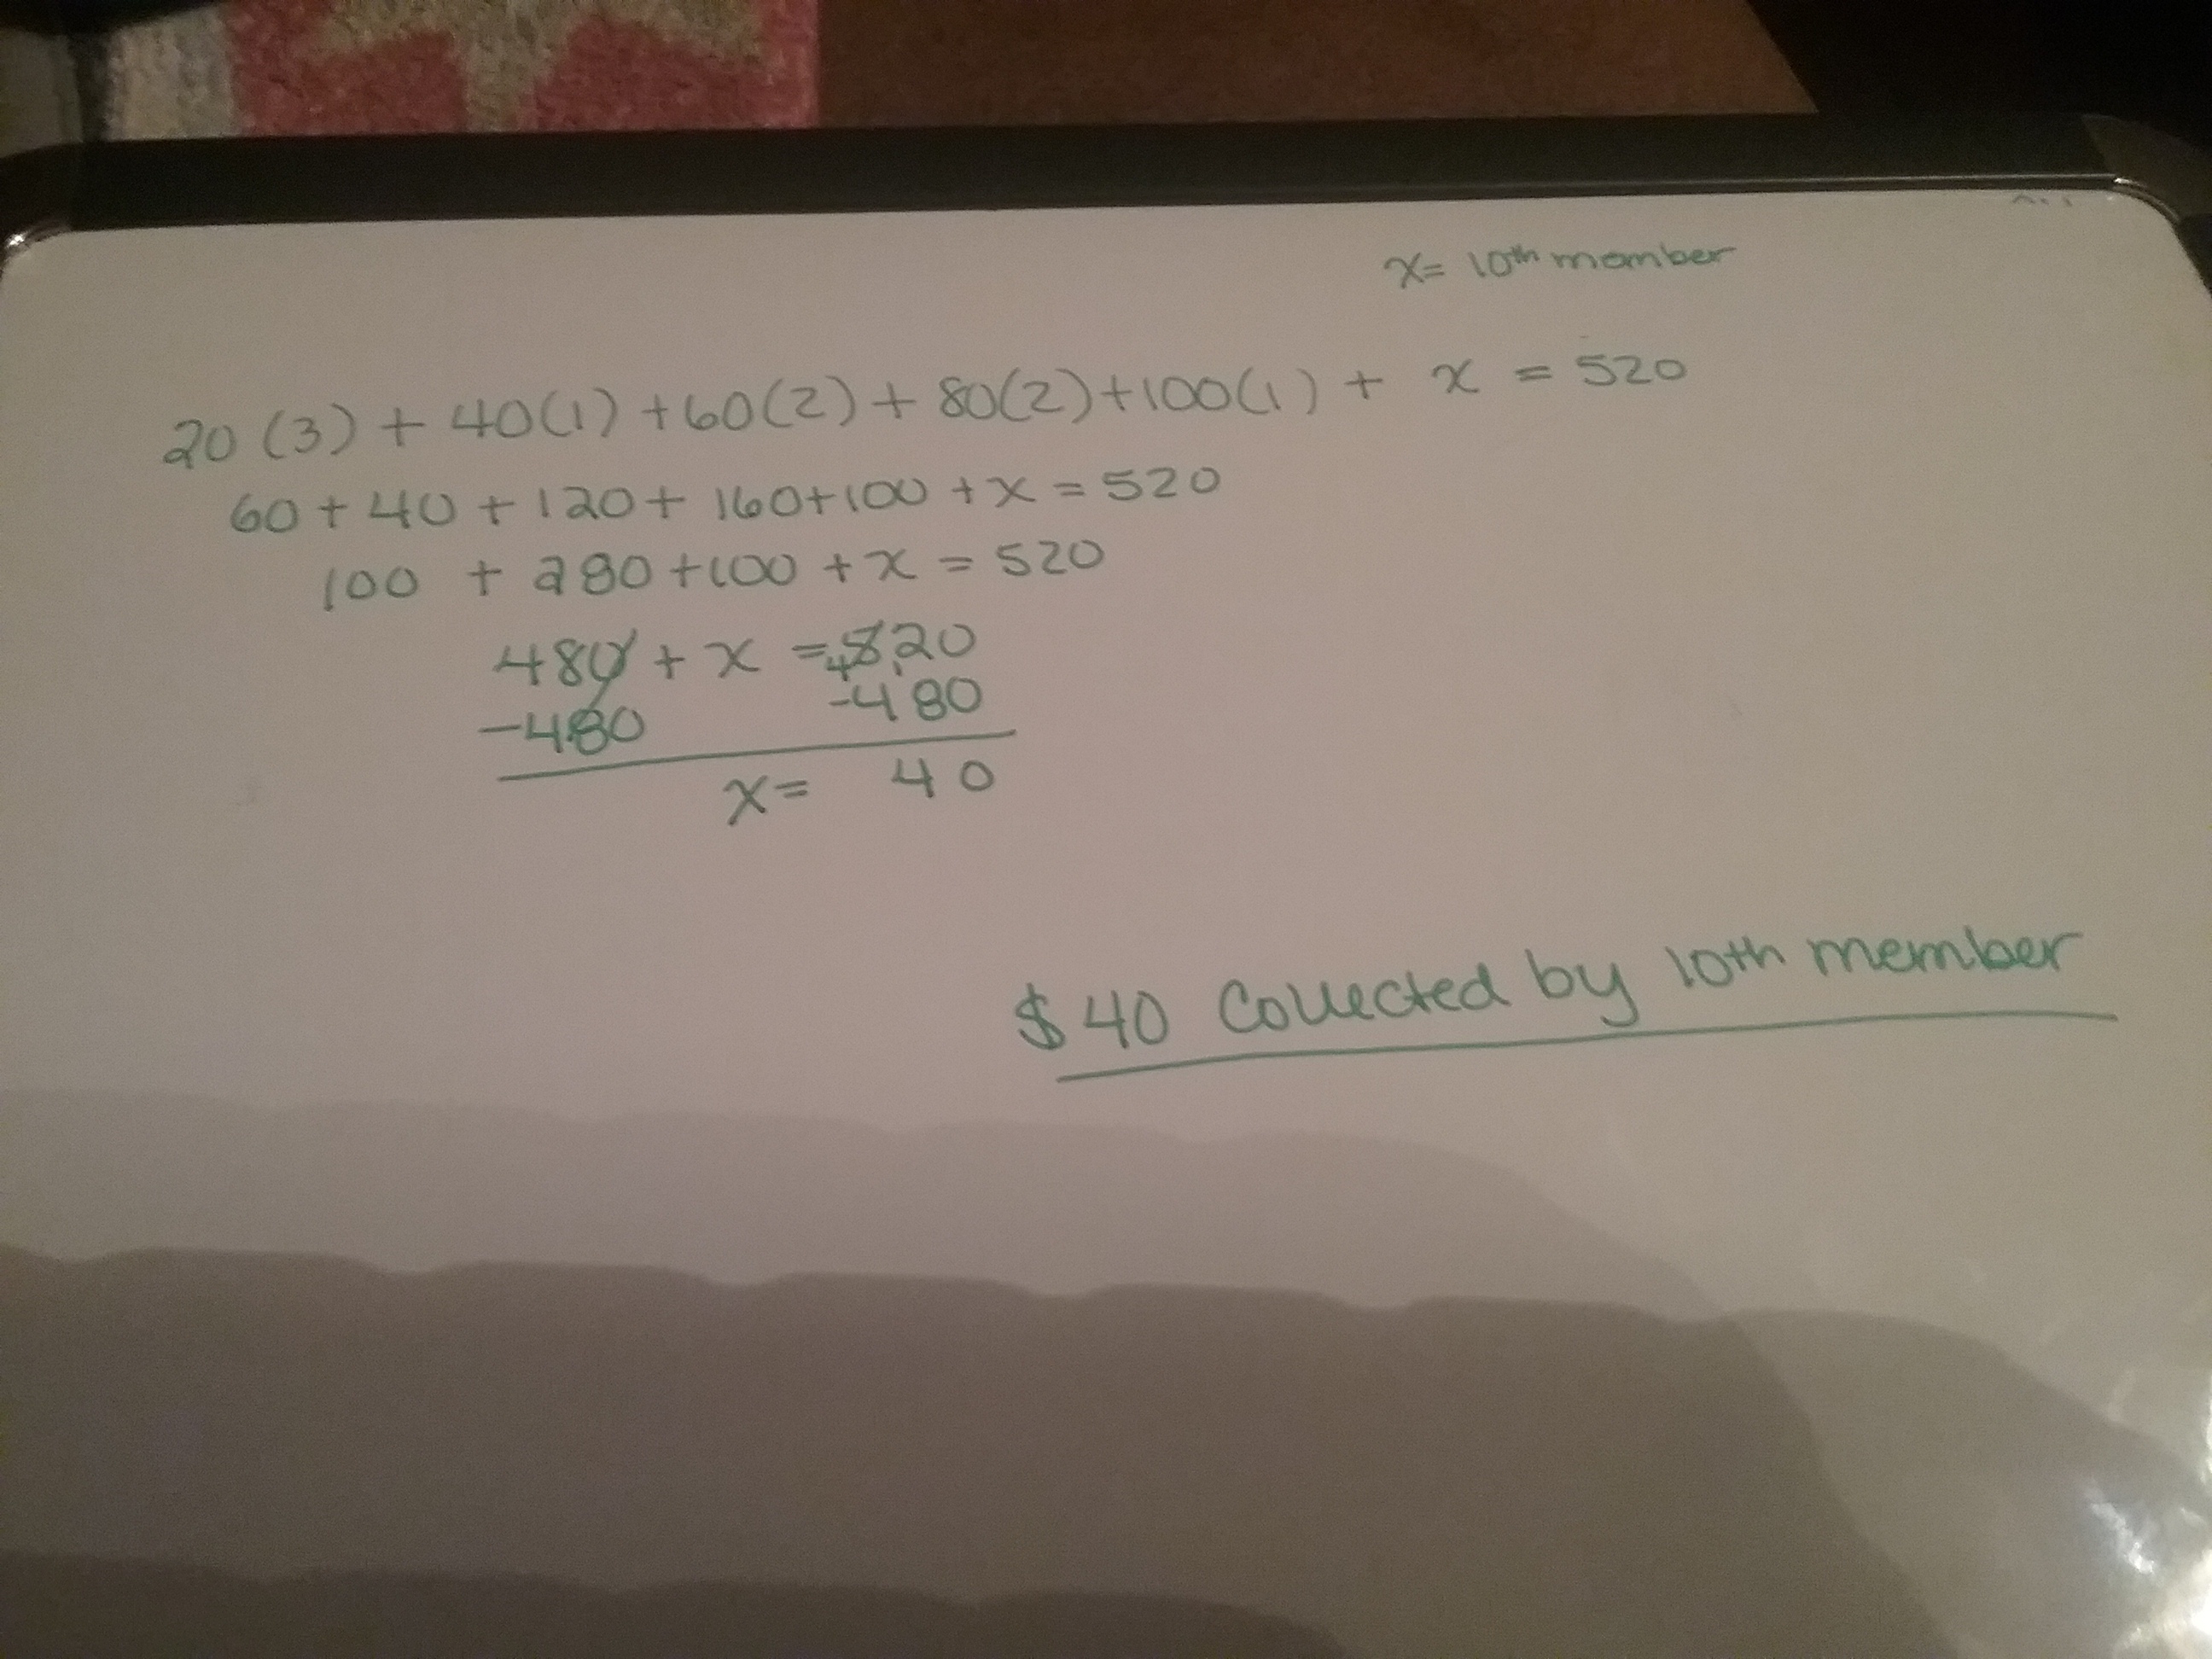 x= 10th member
20(3) + 40(1) + 60(2) + 80(2) + 100(1) + x = 520
60 + 40 + 120 + 160 + 100 + x = 520
100 + 280 + 100 + x = 520
480 + x = 520
4 1
-480 -480
x= 40
$40 Collected by 10th member